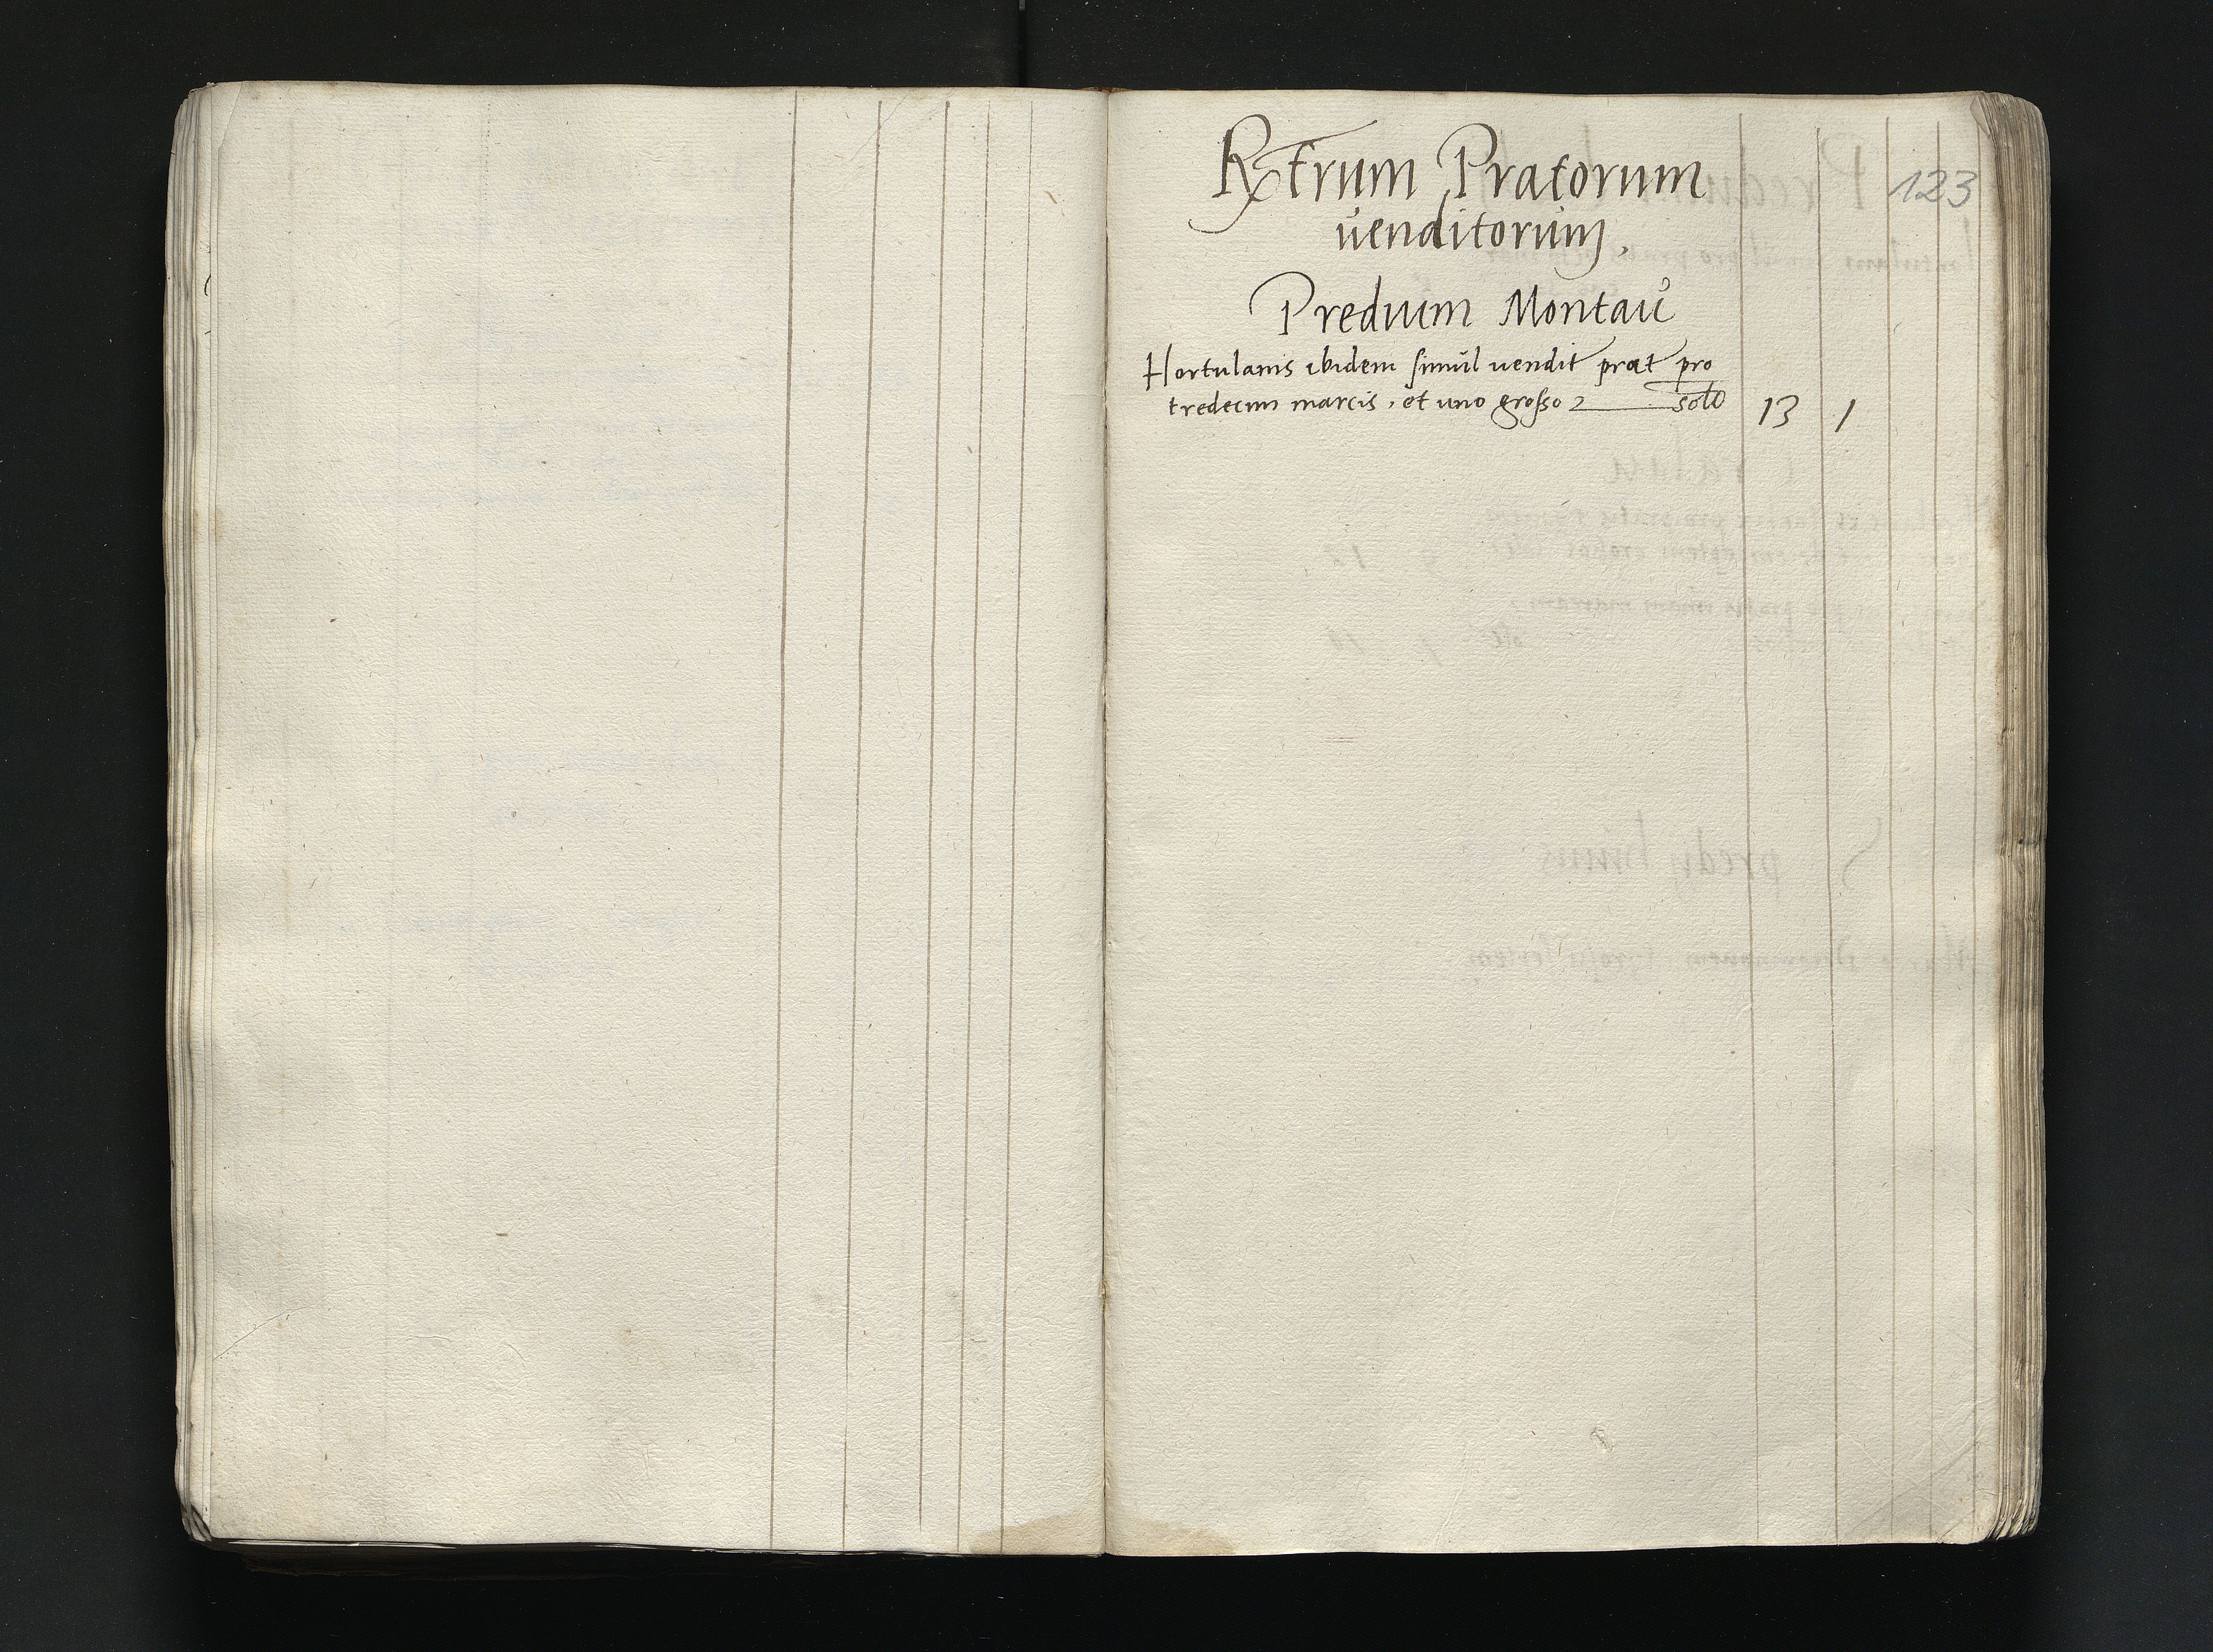 Rxtrum Pratorum
123
venditorum,
Predium Montau
Hortulanis ibidem simul vendit prat pro
tredecim marcis, et uno grosso solt 13 1